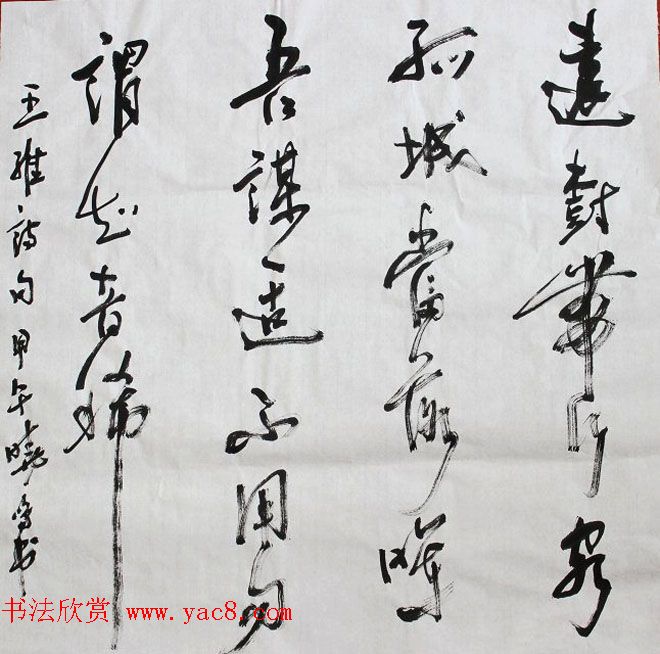 遠樹帶行客
孤城當落暉
吾謀适不用勿
謂知音稀
王維詩句甲午曉書
书法欣赏 www.yac8.com